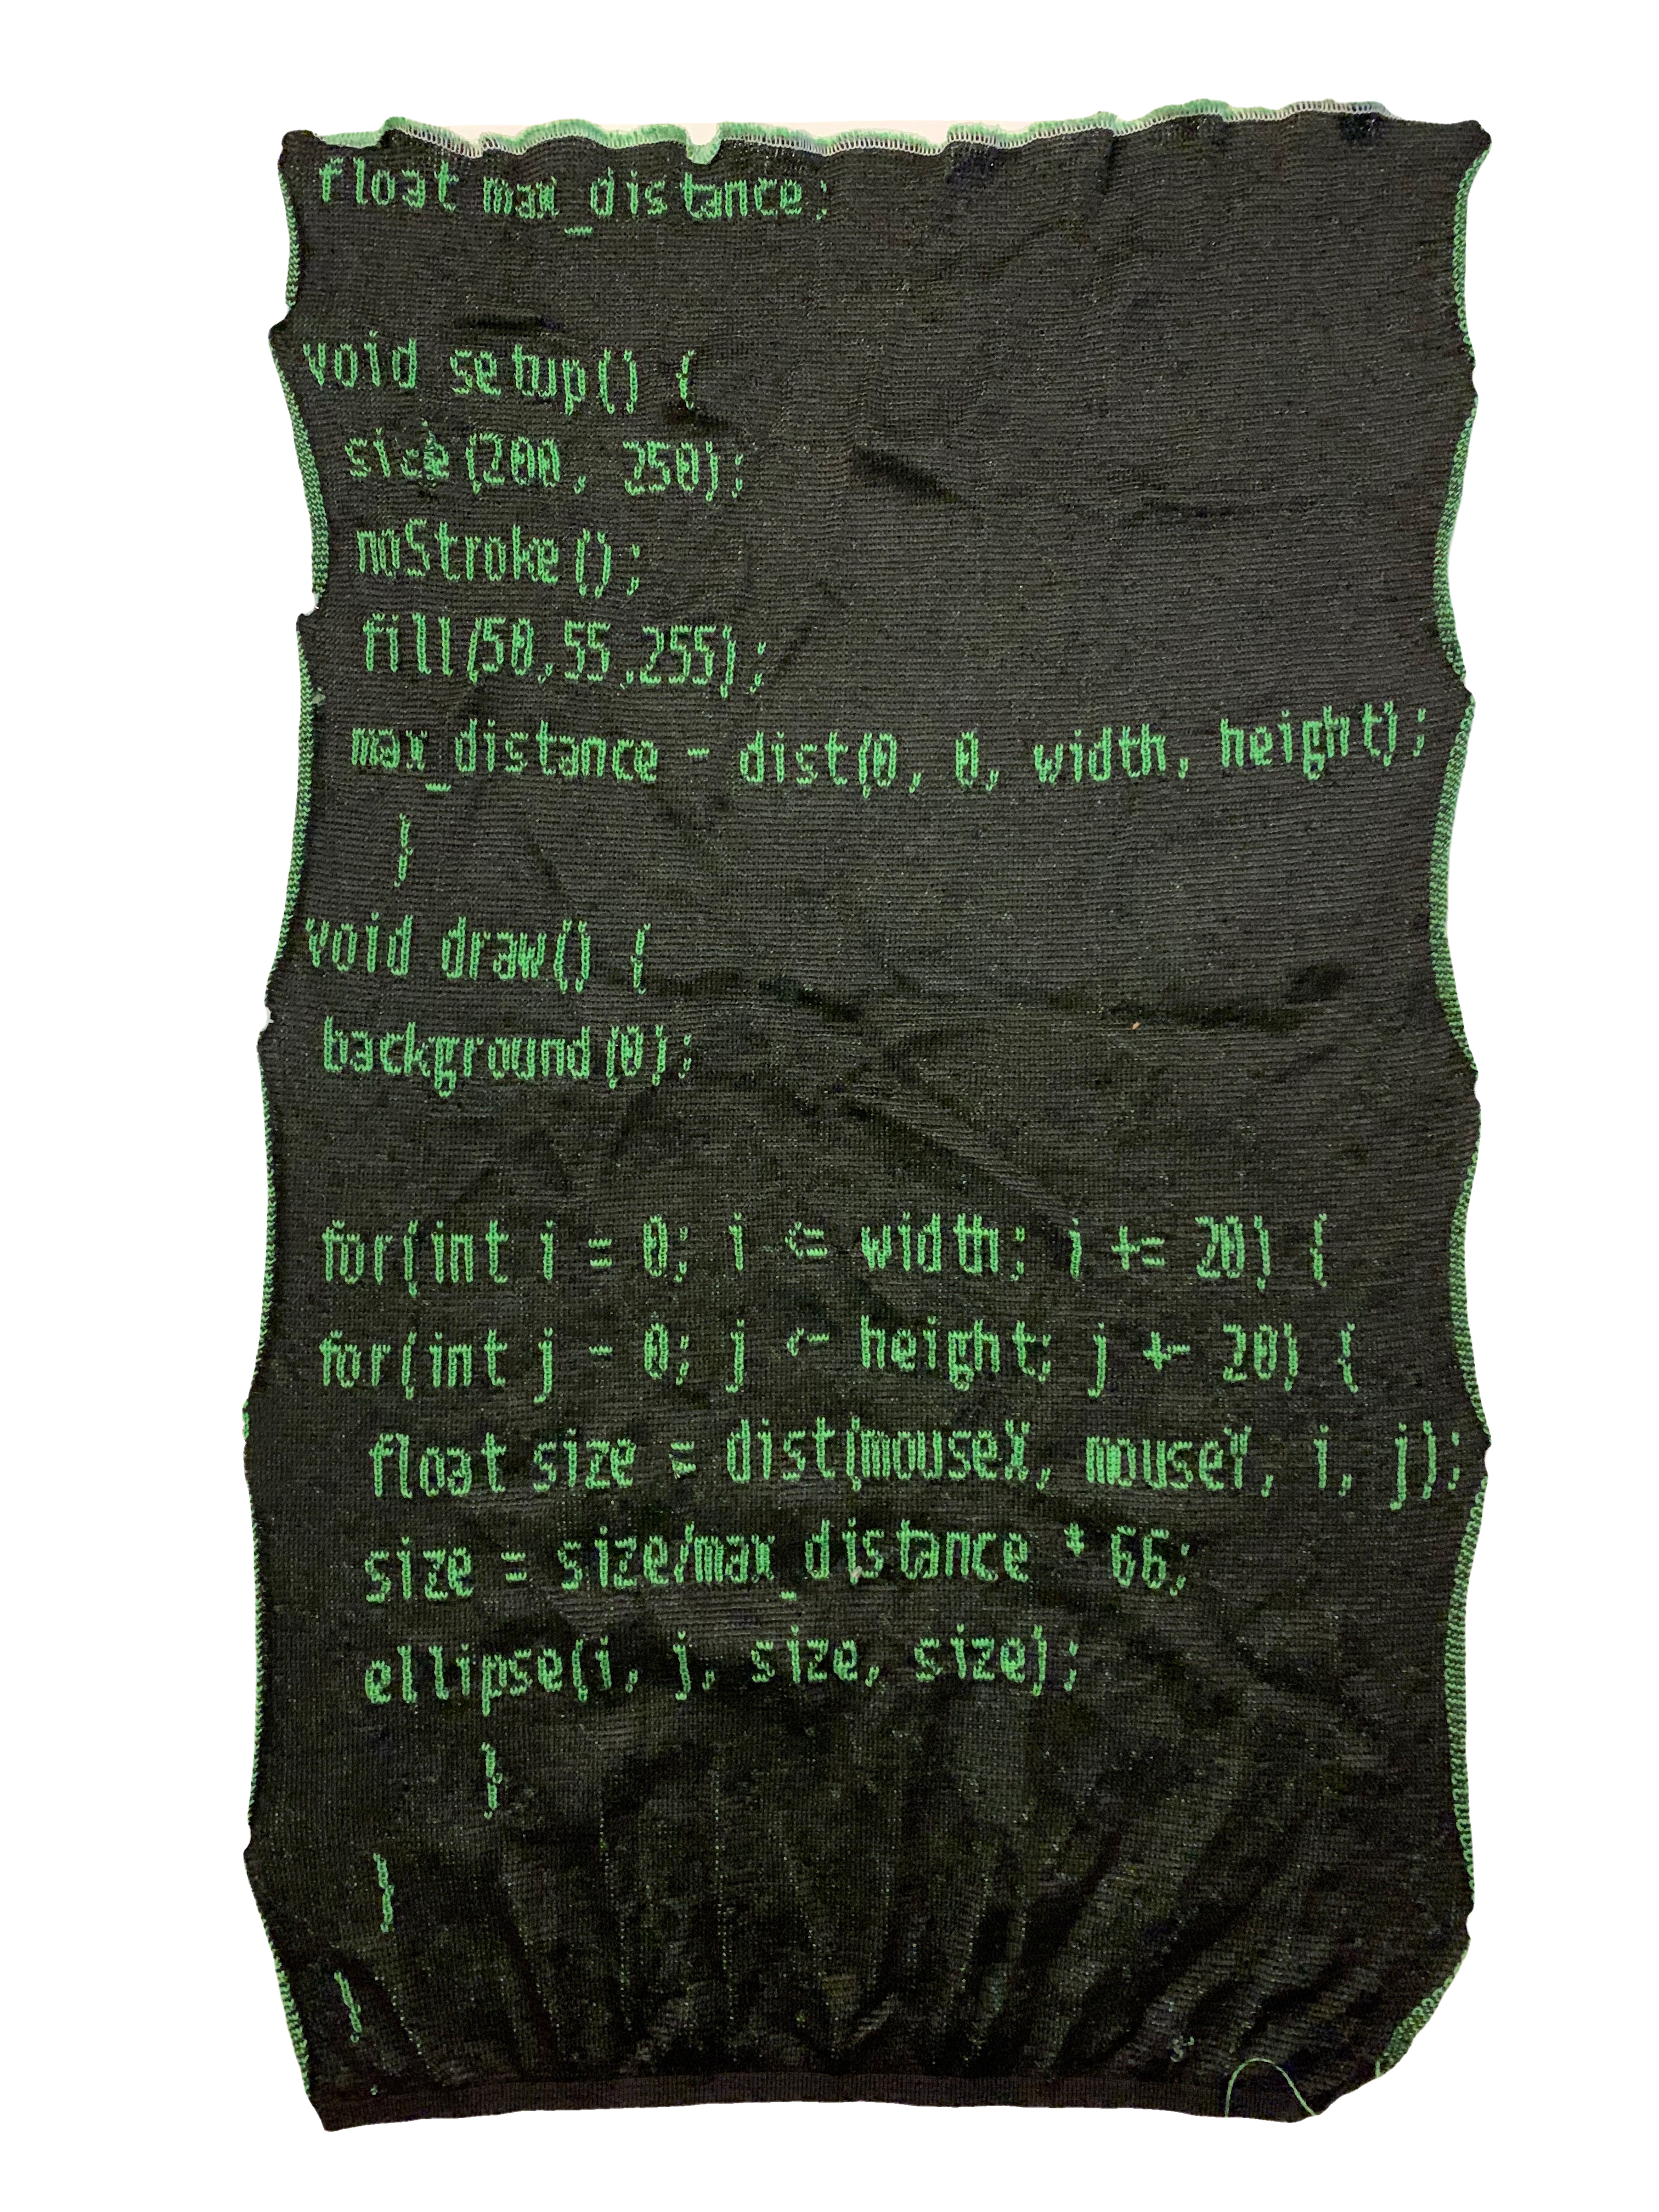 float max_distance;
void setup() {
size(200, 250);
noStroke();
fill(50,55,255);
max_distance - dist(0, 0, width, height);
}
void draw() {
background(0);
for(int i = 0; i <= width; i += 20) {
for(int j - 0; j <- height; j +- 20) {
float size = dist(mouseX, mouseY, i, j);
size = size/max_distance * 66;
ellipse(i, j, size, size);
}
}
}